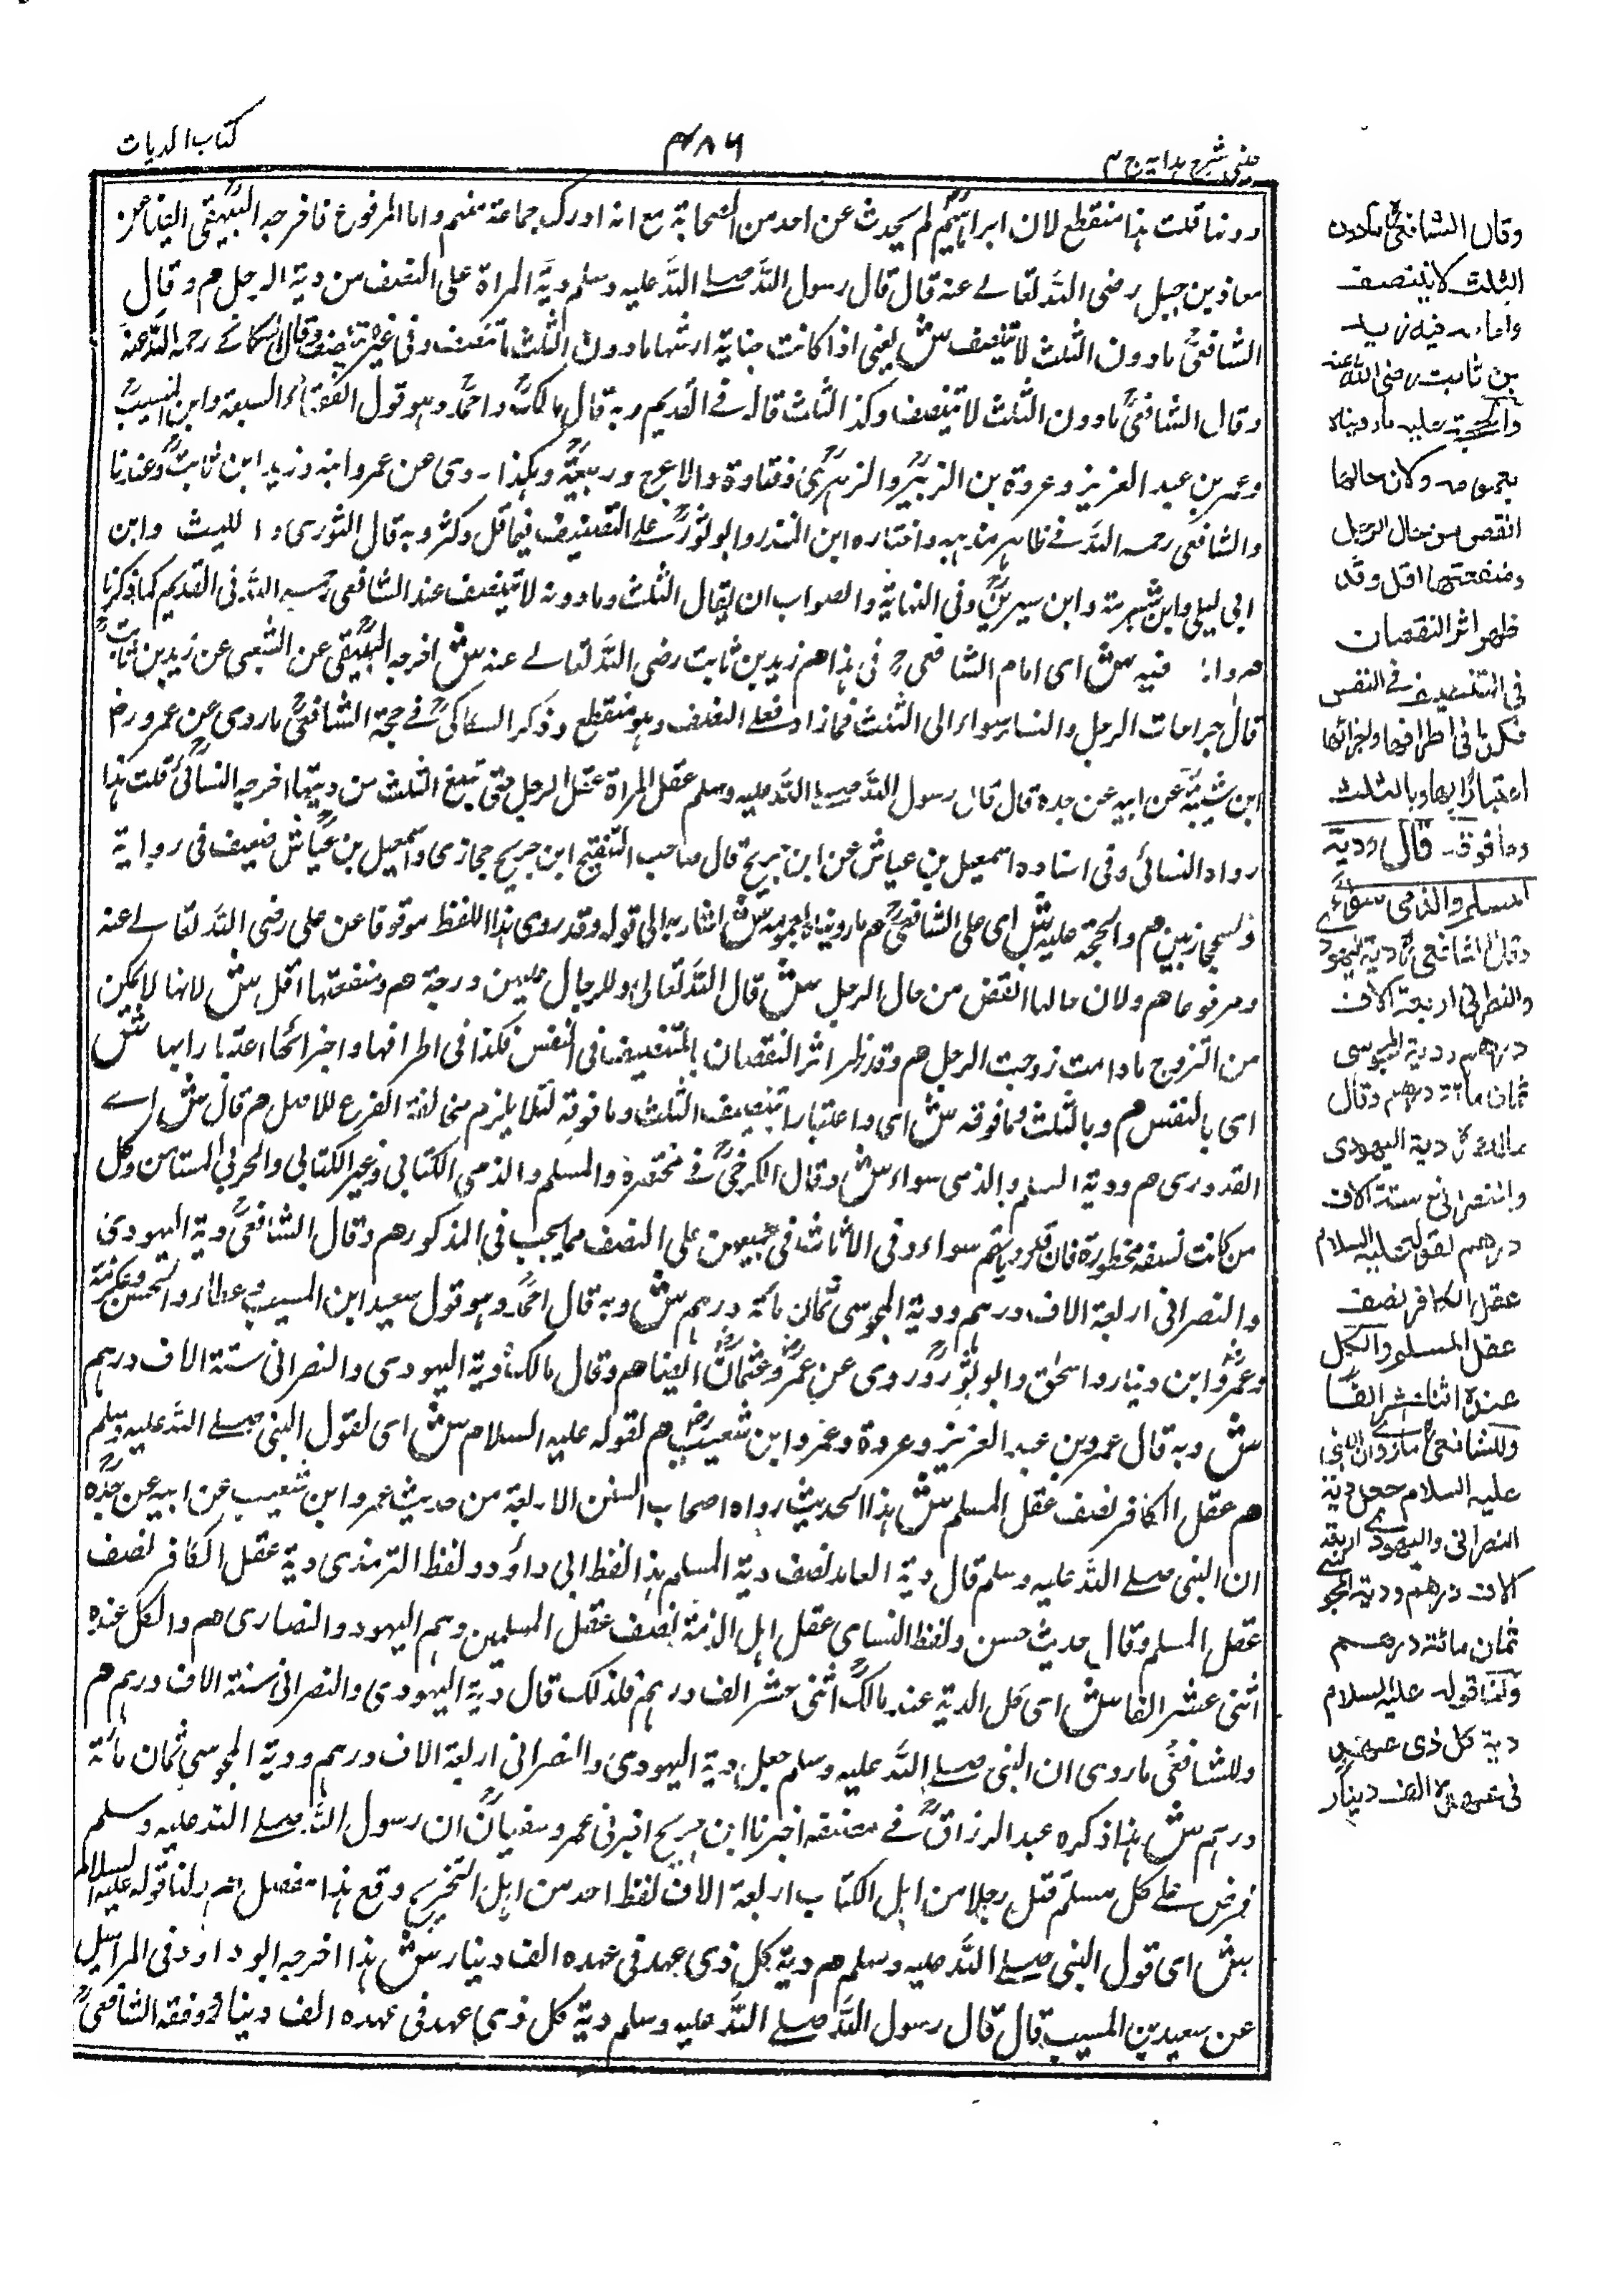 عینی شرح ہدایہ ج ۴
۴۸۶
کتاب الدیات
دونہا قلت ہذا منقطع لان ابراہیم لم یحدث عن احد من الصحابة مع انہ ادرک جماعة منہم واما المرفوع فاخرجہ البیہقی ایضا عن
معاذ بن جبل رضی اللہ تعالے عنہ قال قال رسول اللہ صلے اللہ علیہ وسلم دیة المراة علی النصف من دیة الرجل م وقال
الشافعی مادون الثلث لا یتنصف ش یعنی اذا کانت جنایة ارشہا مادون الثلث لا یتنصف وفی غیرہ یتنصف وقال السکاکے رحمہ اللہ عنہ
وقال الشافعی مادون الثلث لا یتنصف وکذا الثلث قالہ فے القدیم وبہ قال مالک واحمد وہو قول الفقہاء السبعة وابن المسیب
وعمر بن عبد العزیز وعروة بن الزبیر والزہری وقتادة والاعرج وربیعة وہکذا روی عن عمر وابنہ وزید ابن ثابت وعندنا
والشافعی رحمہ اللہ فے ظاہر مذہبہ واختارہ ابن المنذر وابو ثور علے التنصیف فیما قل وکثر وبہ قال الثوری و اللیث وابن
ابی لیلی وابن شبرمة وابن سیرین وفی النہایة والصواب ان یقال الثلث ومادونہ لا یتنصف عند الشافعی رحمہ اللہ فی القدیم کما ذکرنا
ھ وا فیہ ش ای امام الشافعی فی ہذا ھم زید بن ثابت رضی اللہ تعالے عنہ ش اخرجہ البیہقی عن الشعبی عن زید بن ثابت
قال جراحات الرجل والنساء سواء الی الثلث فما زاد فعلے النصف وہو منقطع وذکر السکاکی فے حجة الشافعی ماروی عن عمرو رض
ابن شیبة عن ابیہ عن جدہ قال قال رسول اللہ صلے اللہ علیہ وسلم عقل المراة عقل الرجل حتی یبلغ الثلث من دیتہا اخرجہ النسائی قلت ہذا
رواہ النسائی وفی اسنادہ اسمعیل بن عیاش عن ابن جریج قال صاحب التنقیح ابن جریج حجازی واسمعیل بن عیاش ضعیف فی روایة
الحجازیین ھم والحجة علیہ ش ای علی الشافعی ھم ماروینا بعمومہ ش اشار بہ الی قولہ وقد روی ہذا اللفظ موقوفا عن علی رضی اللہ تعالے عنہ
ومرفوعا ھم ولان حالہا انقض من حال الرجل ش قال اللہ تعالی وللرجال علیہن درجة ھم ومنفعتہا اقل ش لانہا لا یمکن
من التزوج مادامت زوجت الرجل ھم وقد ظہر اثر النقصان بالتنصیف فی النفس فکذا فی اطرافہا واجزائہا اعتبارا بہا ش
ای بالنفس ھم وبالثلث وما فوقہ ش ای واعتبارا بتنصیف الثلث وما فوقہ لئلا یلزم مخالفة الفرع للاصل ھم قال ش اے
القدوری ھم ودیة المسلم والذمی سواء ش وقال الکرخی فے مختصرہ والمسلم والذمی الکتابی وغیر الکتابی والحربی المستامن وکل
من کانت نفسہ محظورة فان ذکور دیاتہم سواء وفی الاناث فی جمیعہن علی النصف مما یجب فی الذکور ھم وقال الشافعی دیة الیہودی
والنصرانی اربعة الاف درہم ودیة المجوسی ثمان مائة درہم ش وبہ قال احمد وہو قول سعید ابن المسیب وعطاء والحسن وعکرمة
وعمرو ابن دینار واسحٰق وابو ثور وروی عن عمر وعثمان ایضا ھم وقال مالک دیة الیہودی والنصرانی ستة الاف درہم
ش وبہ قال عمر وبن عبد العزیز وعروة وعمرو ابن شعیب ھم لقولہ علیہ السلام ش ای لقول النبی صلے اللہ علیہ وسلم
ھم عقل الکافر نصف عقل المسلم ش ہذا الحدیث رواہ اصحاب السنن الاربعة من حدیث عمرو ابن شعیب عن ابیہ عن جدہ
ان النبی صلے اللہ علیہ وسلم قال دیة المعاہد نصف دیة المسلم ہذا لفظ ابی داؤد ولفظ الترمذی دیة عقل الکافر نصف
عقل المسلم وقال حدیث حسن ولفظ النسای عقل اہل الذمة نصف عقل المسلمین وہم الیہود والنصاری ھم والکل عندہ
اثنی عشر الفا ش ای کل الدیة عند مالک اثنی عشر الف درہم فلذلک قال دیة الیہودی والنصرانی ستة الاف درہم ھم
وللشافعی ماروی ان النبی صلے اللہ علیہ وسلم جعل دیة الیہودی والنصرانی اربعة الاف درہم ودیة المجوسی ثمان مائة
درہم ش ہذا ذکرہ عبد الرزاق فے مصنفہ اخبرنا ابن جریج اخبرنی عمرو سفیان ان رسول اللہ صلے اللہ علیہ وسلم
فرض علے کل مسلم قتل رجلا من اہل الکتاب اربعة الاف لفظ احد من اہل التخریج وقع ہذا مفصل ھم ولنا قولہ علیہ السلام
ش ای قول النبی صلے اللہ علیہ وسلم ھم دیة کل ذی عہد فی عہدہ الف دینار ش ہذا اخرجہ ابو داود فی المراسیل
عن سعید بن المسیب قال قال رسول اللہ صلے اللہ علیہ وسلم دیة کل ذی عہد فی عہدہ الف دینار ووفقہ الشافعی
وقال الشافعی مادون
الثلث لا یتنصف
وامامہ فیہ زید
بن ثابت رضی اللہ عنہ
والحجة علیہ ماروینا
بعمومہ ولان حالہا
انقص من حال الرجل
ومنفعتها اقل وقد
ظہر اثر النقصان
فی التنصیف فے النفس
فکذا فی اطرافها واجزائها
اعتبارا بها وبالثلث
وما فوقہ قال ودیة
المسلم والذمی سواء
وقال الشافعی دیة الیہود
والنصرانی اربعة آلاف
درهم ودیة المجوسی
ثمان مائة درهم وقال
مالک دیة الیهودی
والنصرانی ستة آلاف
درهم لقولہ علیہ السلام
عقل الکافر نصف
عقل المسلم والکل
عندہ اثنا عشر الفا
وللشافعی ماروی ان النبی
علیہ السلام جعل دیة
النصرانی والیهودی اربعة
آلاف درهم ودیة المجوسی
ثمان مائة درهم
ولنا قولہ علیہ السلام
دیة کل ذی عهد
فی عهدہ الف دینار